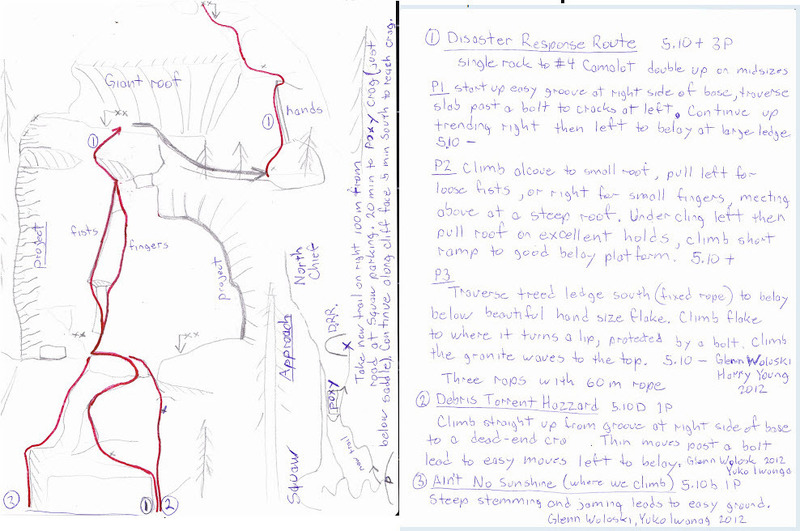 Giant roof
xx
hands
①
①
project
fists
fingers
project
xx
xx
③
①
②
Take new trail on right 100m from
road at Squaw parking. 20 min to poxy crag (just
below saddle). Continue along cliff face 5 min south to reach crag.
Approach
North
Chief
Squaw
new trail
poxy
X
DRR.
P
① Disaster Response Route 5.10+ 3P
single rack to #4 Camalot double up on midsizes
P1 start up easy groove at right side of base, traverse
slab past a bolt to cracks at left. Continue up
trending right then left to belay at large ledge
5.10 -
P2 Climb alcove to small roof, pull left for
loose fists, or right for small fingers, meeting
above at a steep roof. Undercling left then
pull roof on excellent holds, climb short
ramp to good belay platform. 5.10+
P3
Traverse treed ledge south (fixed rope) to belay
below beautiful hand size flake. Climb flake
to where it turns a lip, protected by a bolt. Climb
the granite waves to the top. 5.10 - Glenn Woloski
Harry Young
2012
Three raps with 60m rope
② Debris Torrent Hazzard 5.10D 1P
Climb straight up from groove at right side of base
to a dead-end cra . Thin moves past a bolt
lead to easy moves left to belay. Glenn Wolosk 2012
Yuko Iwanga
③ Ain't No Sunshine (where we climb) 5.10b 1P
Steep stemming and jaming leads to easy ground.
Glenn Woloski, Yuko Iwanag 2012